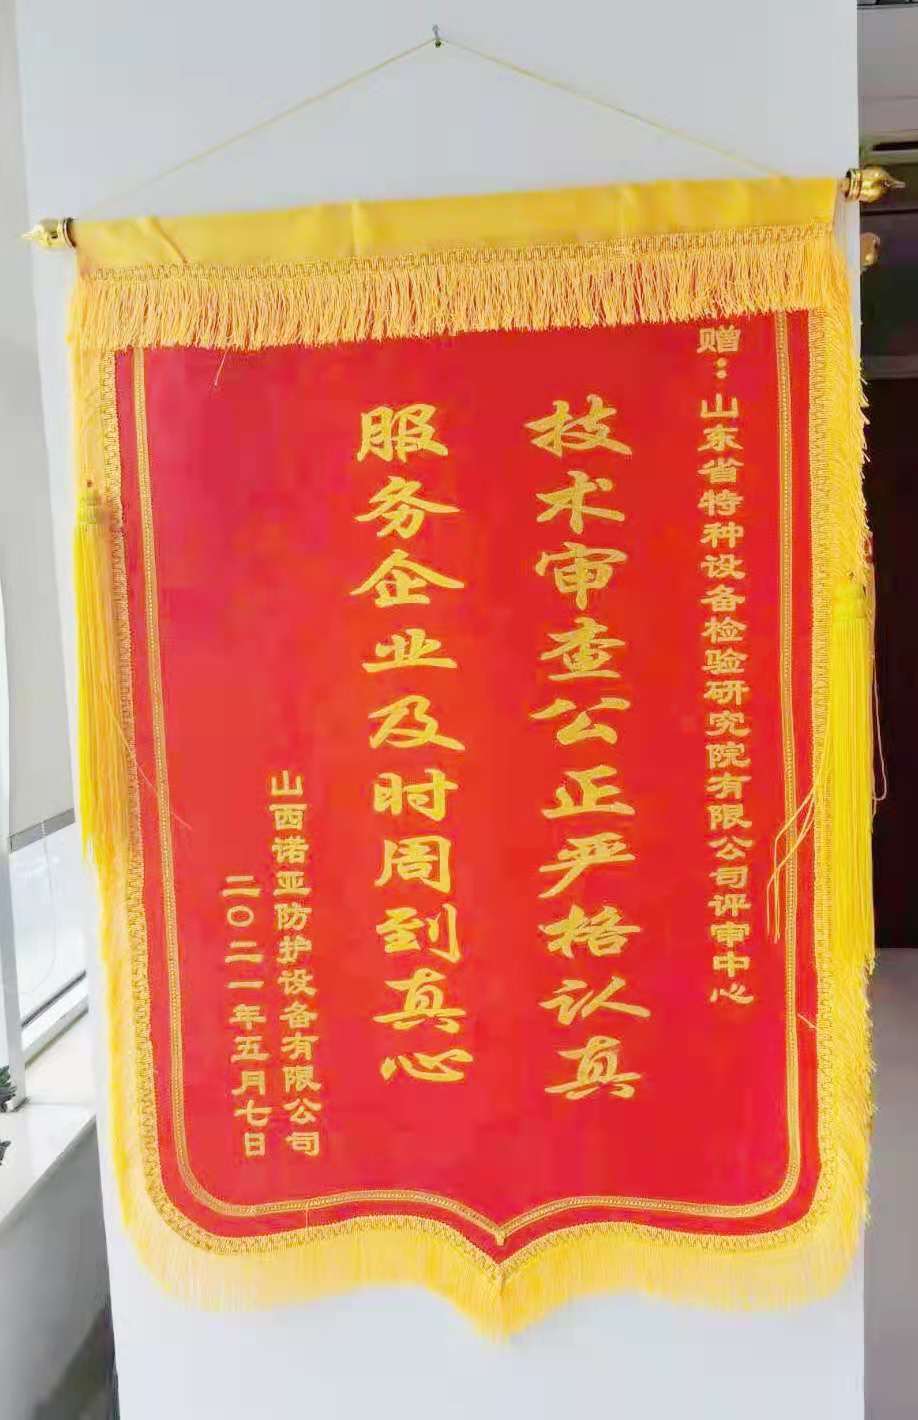 赠：山东省特种设备检验研究院有限公司评审中心
技术审查公正严格认真
服务企业及时周到真心
山西诺亚防护设备有限公司
二〇二一年五月七日